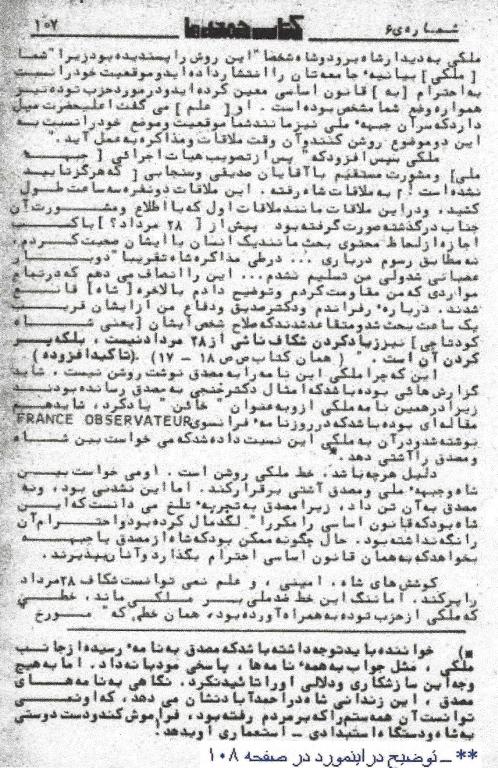 ۱۰۷ کتاب جمعه‌ها شماره‌ی ۶
ملکی به دیدار شاه برود و شاه شخصا" این روش را پسندیده بود زیرا "شما
[ ملکی ] بیانیهٔ جامعه‌تان را انتشار داده اید و موقعیت خود را نسبت
به احترام [ به ] قانون اساسی معین کرده اید و در مورد حزب توده نیز
همواره وضع شما مشخص بوده است . او [ علم ] می گفت اعلیحضرت میل
دارد که سران جبههٔ ملی نیز مانند شما موقعیت و موضع خود را نسبت به
این دو موضوع روشن کنند و آن وقت ملاقات و مذاکره به عمل آید . "
ملکی سپس افزود که " پس از تصویب هیات اجرائی [ جبهه
ملی] و مشورت مستقیم با آقایان صدیقی و سنجابی [ که هرگز تایید
نشده است ! ] به ملاقات شاه رفته . این ملاقات دو نفره سه ساعت طول
کشید . و در این ملاقات مانند ملاقات اول که با اطلاع و مشورت آن
جناب در گذشته صورت گرفته بود پیش از [ ۲۸ مرداد ؟ ] با کسب
اجازه از لحاظ محتوی بحث مانند یک انسان با ایشان صحبت کردم ،
نه مطابق رسوم درباری ... در طی مذاکره شاه تقریبا" دو بار
عصبانی شد ولی من تسلیم نشدم ... این را انصاف می دهم که در تمام
مواردی که من مقاومت کردم و توضیح دادم بالاخره [ شاه ] قانع
شدند . دربارهٔ رفراندم و دکتر مصدق و دفاع من از ایشان قریب
یک ساعت بحث شد و متقاعد شدند که صلاح شخص ایشان [ یعنی شاه
کودتاچی ] نیز زیاد کردن شکاف ناشی از ۲۸ مرداد نیست ، بلکه پر
کردن آن است . " ( همان کتاب صص ۱۸ - ۱۷ ) . (تاکید افزوده )
این که چرا ملکی این نامه را به مصدق نوشت روشن نیست . شاید
گزارش هائی بوده باشد که امثال دکتر خنجی به مصدق رسانده بودند
زیرا در همین نامه ملکی از او به عنوان " خائن " یاد کرد ، شاید هم
مقاله‌ای بوده باشد که در روزنامهٔ فرانسوی FRANCE OBSERVATEUR
نوشته شد و در آن به ملکی این نسبت داده شد که می خواست بین شاه
و مصدق را آشتی دهد . *
دلیل هرچه باشد ، خط ملکی روشن است . او می خواست بین
شاه و جبههٔ ملی و مصدق آشتی برقرار کند . اما این نشدنی بود ، و نه
مصدق به آن تن داد ، زیرا مصدق به تجربهٔ تلخ می دانست که این
شاه بود که قانون اساسی را مکررا" لگدمال کرده بود و احترام آن
را نگه نداشته بود . حال چگونه ممکن بود که شاه از مصدق یا جبهه
بخواهد که به همان قانون اساسی احترام بگذارد و آنان بپذیرند .
کوشش های شاه ، امینی ، و علم نمی توانست شکاف ۲۸ مرداد
را پر کند . اما ننگ این خط ضد ملی بر ملکی ماند ، خطی
که ملکی از حزب توده به همراه آورده بود ، همان خطی که " مورخ "
*) خواننده باید توجه داشته باشد که مصدق به نامهٔ رسیده از جانب
ملکی ، مثل جواب به همهٔ نامه ها ، پاسخی مودبانه داد . اما به هیچ
وجه این سازشکاری و دلالی او را تائید نکرد . نگاهی به نامه های
مصدق ، این زندانی شاه در احمدآباد نشان می دهد ، که او نمی
توانست آن همه ستم را که بر مردم رفته بود ، فراموش کند و دست دوستی
به شاه و دستگاه استبدادی - استعماری او بدهد .
** - توضیح در اینمورد در صفحه ۱۰۸